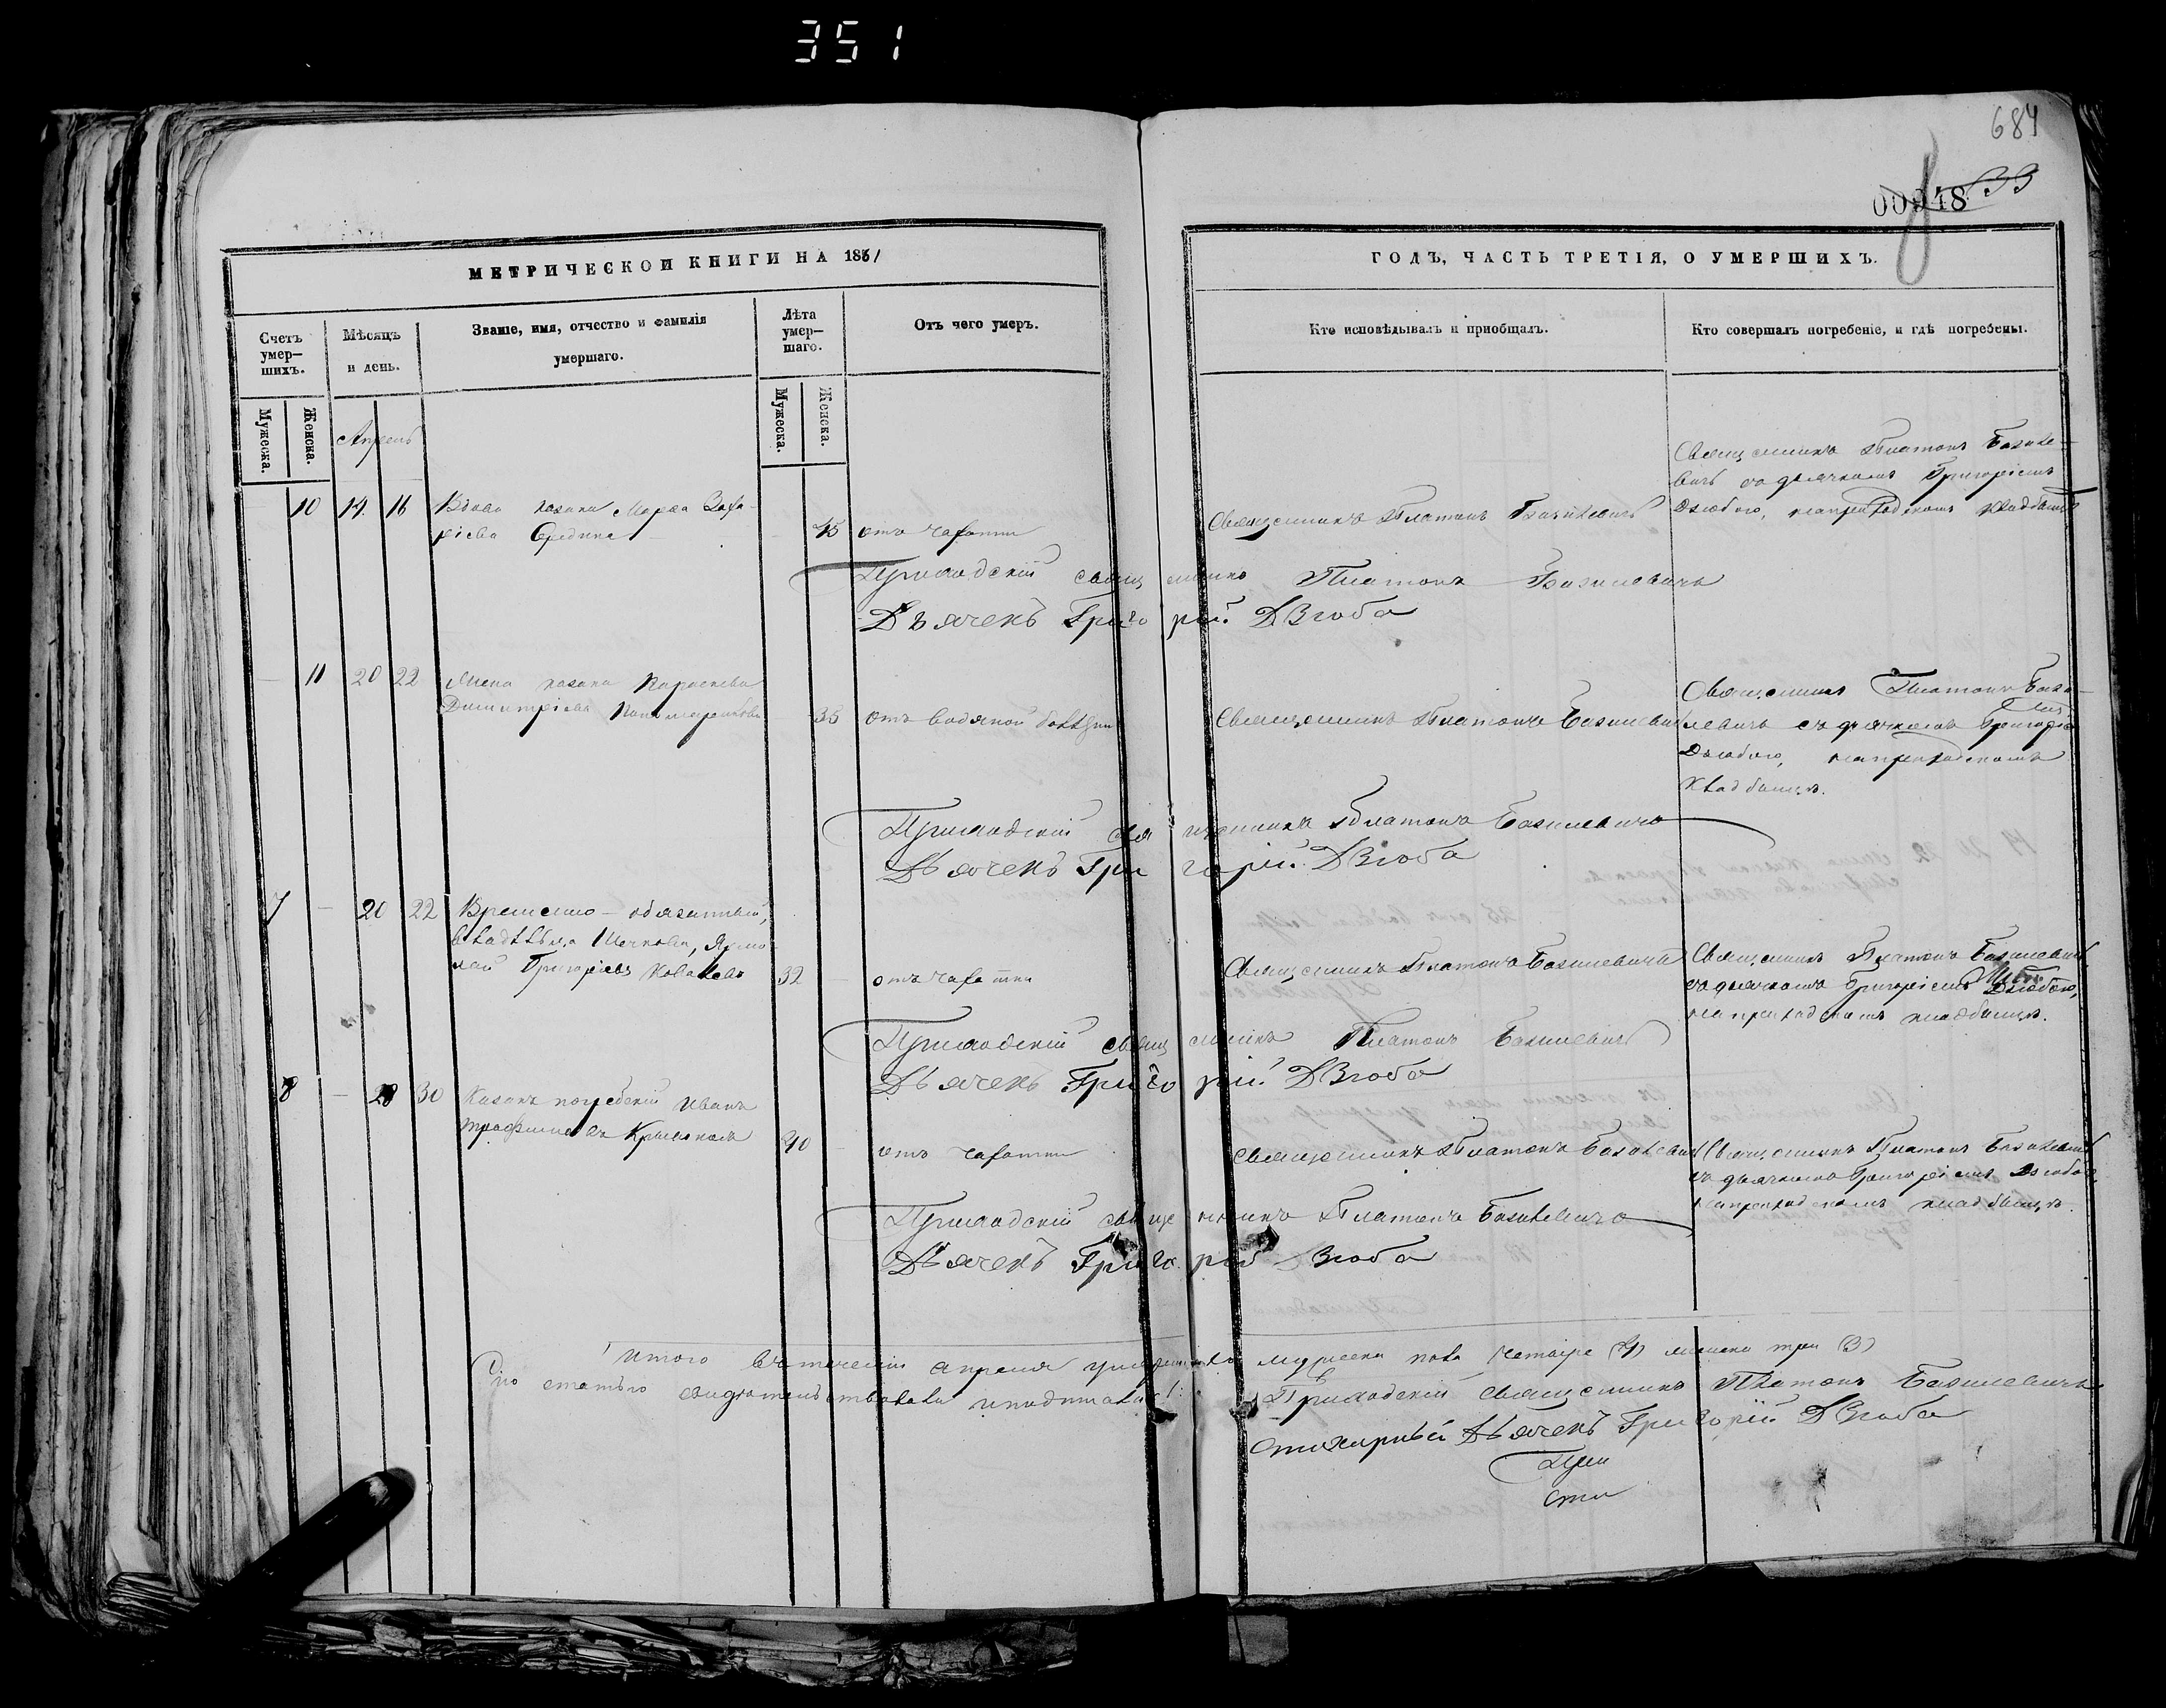 351
684
33
00048
МЕТРИЧЕСКОЙ КНИГИ НА 1861
ГОДЪ, ЧАСТЬ ТРЕТІЯ, О УМЕРШИХЪ.
Счетъ умер-
шихъ.
Мѣсяцъ
и день.
Званіе, имя, отчество и фамилія
умершаго.
Лѣта
умер-
шаго.
Отъ чего умеръ.
Кто исповѣдывалъ и пріобщалъ.
Кто совершалъ погребеніе, и гдѣ погребены.
Мужеска.
Женска.
Мужеска.
Женска.
Апрель
10 14 16 Вдова казака Марѳа Заха-
ріева Середина 45 отъ чахотки
Священникъ Платонъ Базилевичъ
Священникъ Платонъ Базиле-
вичъ съ дьячкомъ Григоріемъ
Дзюбою, на приходскомъ кладбищѣ
Приходскій священникъ Платонъ Базилевичъ
Дьячекъ Григорій Дзюба
11 20 22 Жена казака Параскева
Димитріева 35 отъ водяной болѣзни
Священникъ Платонъ Базилевичъ
Священникъ Платонъ Бази-
левичъ съ дьячкомъ Григоріемъ
Дзюбою, на приходскомъ
кладбищѣ.
Приходскій священникъ Платонъ Базилевичъ
Дьячекъ Григорій Дзюба
7 20 22 Временно-обязанный,
владѣльца Ермо-
лай Григоріевъ Ковалевъ 32 отъ чахотки
Священникъ Платонъ Базилевичъ
Священникъ Платонъ Базилевичъ
съ дьячкомъ Григоріемъ Дзюбою,
на приходскомъ кладбищѣ.
Приходскій священникъ Платонъ Базилевичъ
Дьячекъ Григорій Дзюба
8 28 30 Казакъ Иванъ
Трофимовъ 40 отъ чахотки
Священникъ Платонъ Базилевичъ
Священникъ Платонъ Базилевичъ
съ дьячкомъ Григоріемъ Дзюбою,
на приходскомъ кладбищѣ.
Приходскій священникъ Платонъ Базилевичъ
Дьячекъ Григорій Дзюба
Итого въ теченіи апреля умершихъ мужеска пола четыре (4) женска три (3)
Сію статью свидѣтельствовали и подписали:
Приходскій священникъ Платонъ Базилевичъ
Стихарный Дьячекъ Григорій Дзюба